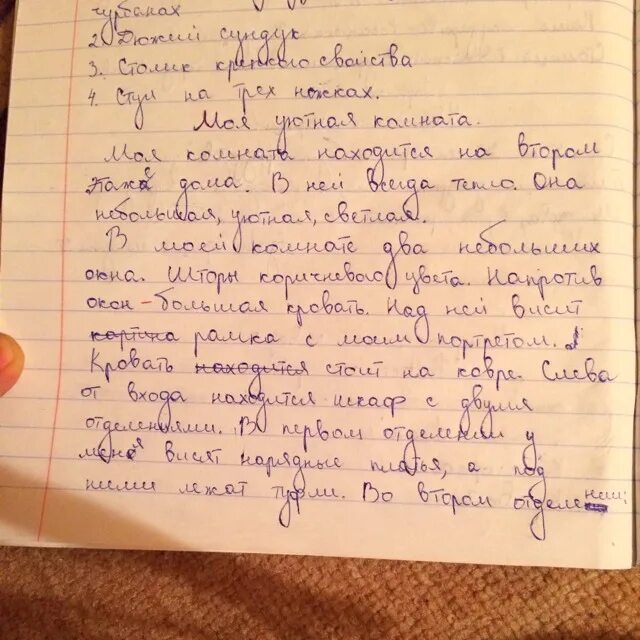 чурбанах
2. Дюжий сундук
3. Столик крепкого свойства
4. Стул на трех ножках.
Моя уютная комната.
Моя комната находится на втором
этаже дома. В ней всегда тепло. Она
небольшая, уютная, светлая.
В моей комнате два небольших
окна. Шторы коричневого цвета. Напротив
окон - большая кровать. Над ней висит
картина рамка с моим портретом.
Кровать находится стоит на ковре. Слева
от входа находится шкаф с двумя
отделениями. В первом отделении у
меня висят нарядные платья, а под
ними лежат туфли. Во втором отделении